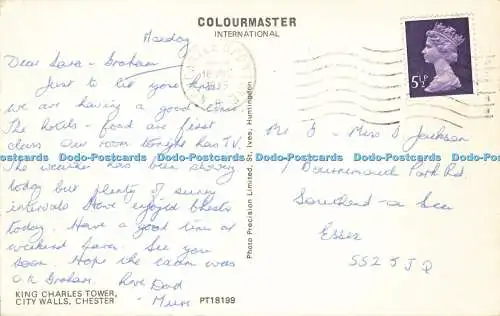 COLOURMASTER
INTERNATIONAL
Monday
Dear Sara - Graham
Just to let you know
we are having a good time
The hotels - food are first
class our room tonight has T.V.
The weather has been showery
today but plenty of sunny
intervals Have enjoyed Chester
today. Have a good time at
weekend Sara. See you
soon. Hope the exam was
O.K Graham. Love Dad
- Mum
KING CHARLES TOWER,
CITY WALLS, CHESTER
PT18199
Photo Precision Limited, St. Ives, Huntingdon
5½P
Mr G - Miss S Jackson
7 Bournemouth Park Rd
Southend-on Sea
Essex
SS2 5JQ
Dodo-Postcards Dodo-Postcards Dodo-Postcards Dodo-Postcards Dodo-Postcards Dodo-Postcards